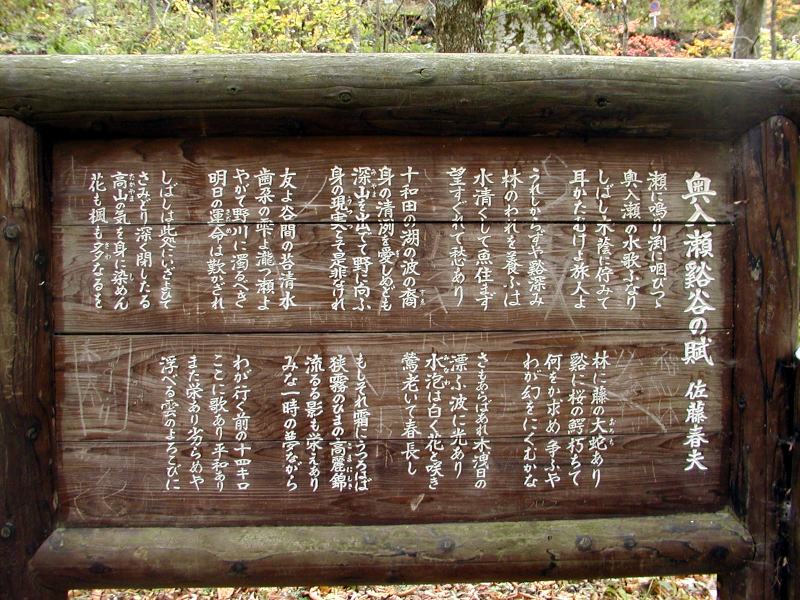 奥入瀬谿谷の賦 佐藤春夫
瀬に鳴り渕に咽びつゝ
奥入瀬の水歌ふなり
しばし木蔭に佇みて
耳かたむけよ旅人よ
うれしからずや谿深み
林のわれを養ふは
水清くして魚住まず
望すぐれて愁あり
十和田の湖の波の裔
身の清冽を愛しめども
深山を出でて野に向ふ
身の現実こそ是非なけれ
友よ谷間の苔清水
歯朶の雫よ瀧つ瀬よ
やがて野川に濁るべき
明日の運命は歎かざれ
しばしは此処にいざよひて
さみどり深く閉したる
高山の気を身に染めん
花も楓も多なるを
林に藤の大蛇あり
谿に桜の鰐朽ちて
何をか求め争ふや
わが幻をにくむかな
さもあらばあれ木洩日の
漂ふ波に光あり
水泡は白く花と咲き
鶯老いて春長し
もしそれ霜にうつろはば
狭霧のひまの高麗錦
流るる影も栄えあり
みな一時の夢ながら
わが行く前の十四キロ
ここに歌あり平和あり
また栄あり劣らめや
浮べる雲のよろこびに